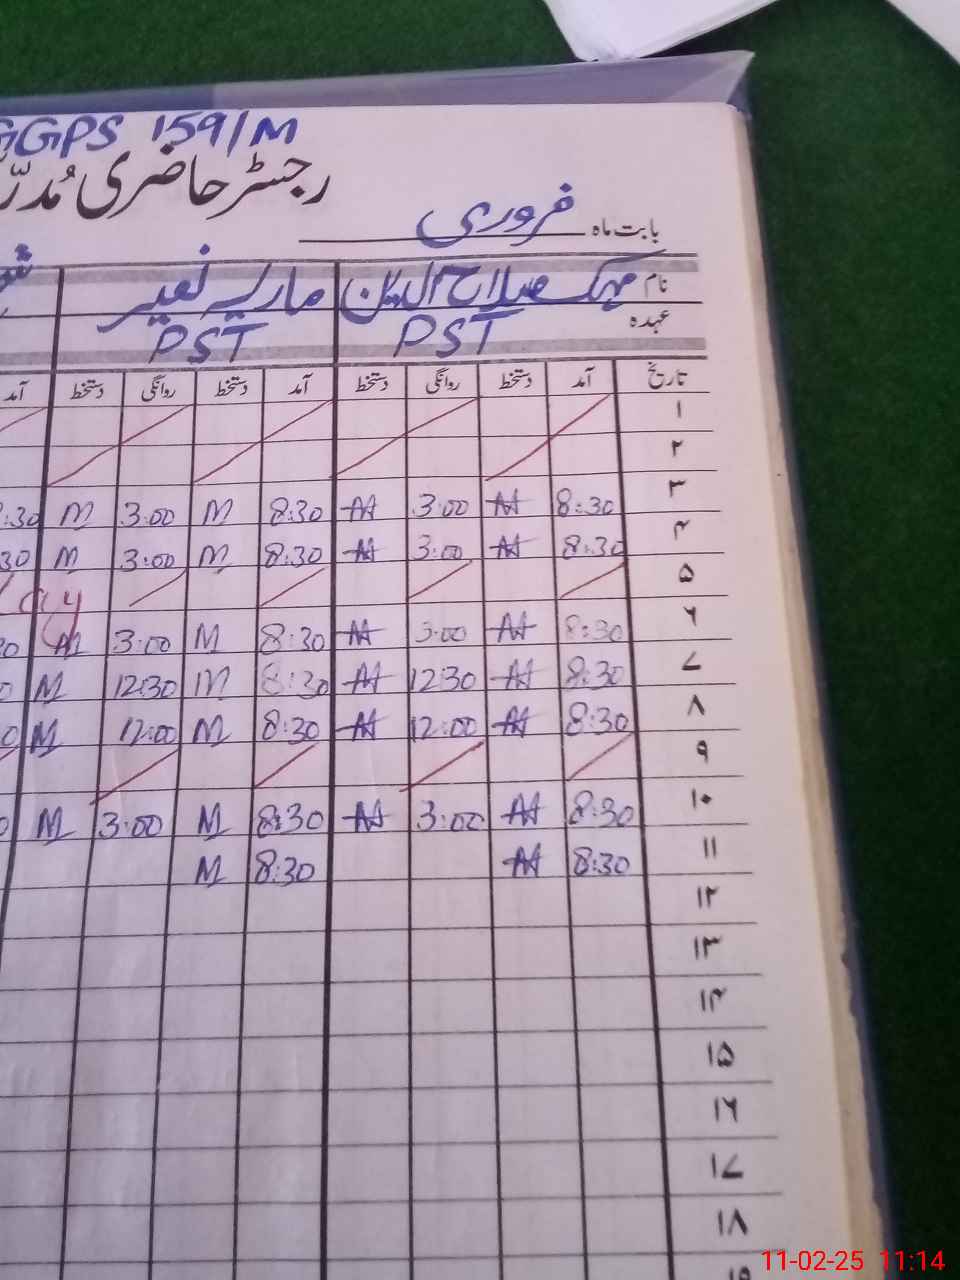 GGPS 159/M
رجسٹر حاضری مُدرّ
بابت ماہ فروری
نام مہک صلاح الدین ماریہ نعیم
عہدہ PST PST
تاریخ آمد دستخط روانگی دستخط آمد دستخط روانگی دستخط آمد
۱
۲
۳ 8:30 M 3:00 M 8:30 M 3:00 M :30
۴ 8:30 M 3:00 M 8:30 M 3:00 M 30
۵
۶ 8:30 M 3:00 M 8:30 M 3:00 M 30
۷ 8:30 M 12:30 M 8:30 M 12:30 M 0
۸ 8:30 M 12:00 M 8:30 M 12:00 M 0
۹
۱۰ 8:30 M 3:00 M 8:30 M 3:00 M 0
۱۱ 8:30 M 8:30 M
۱۲
۱۳
۱۴
۱۵
۱۶
۱۷
۱۸
۱۹
11-02-25 11:14